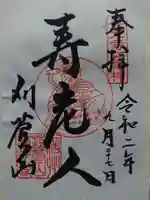 奉拝
令和二年
九月二十七日
寿老人
刈萱山